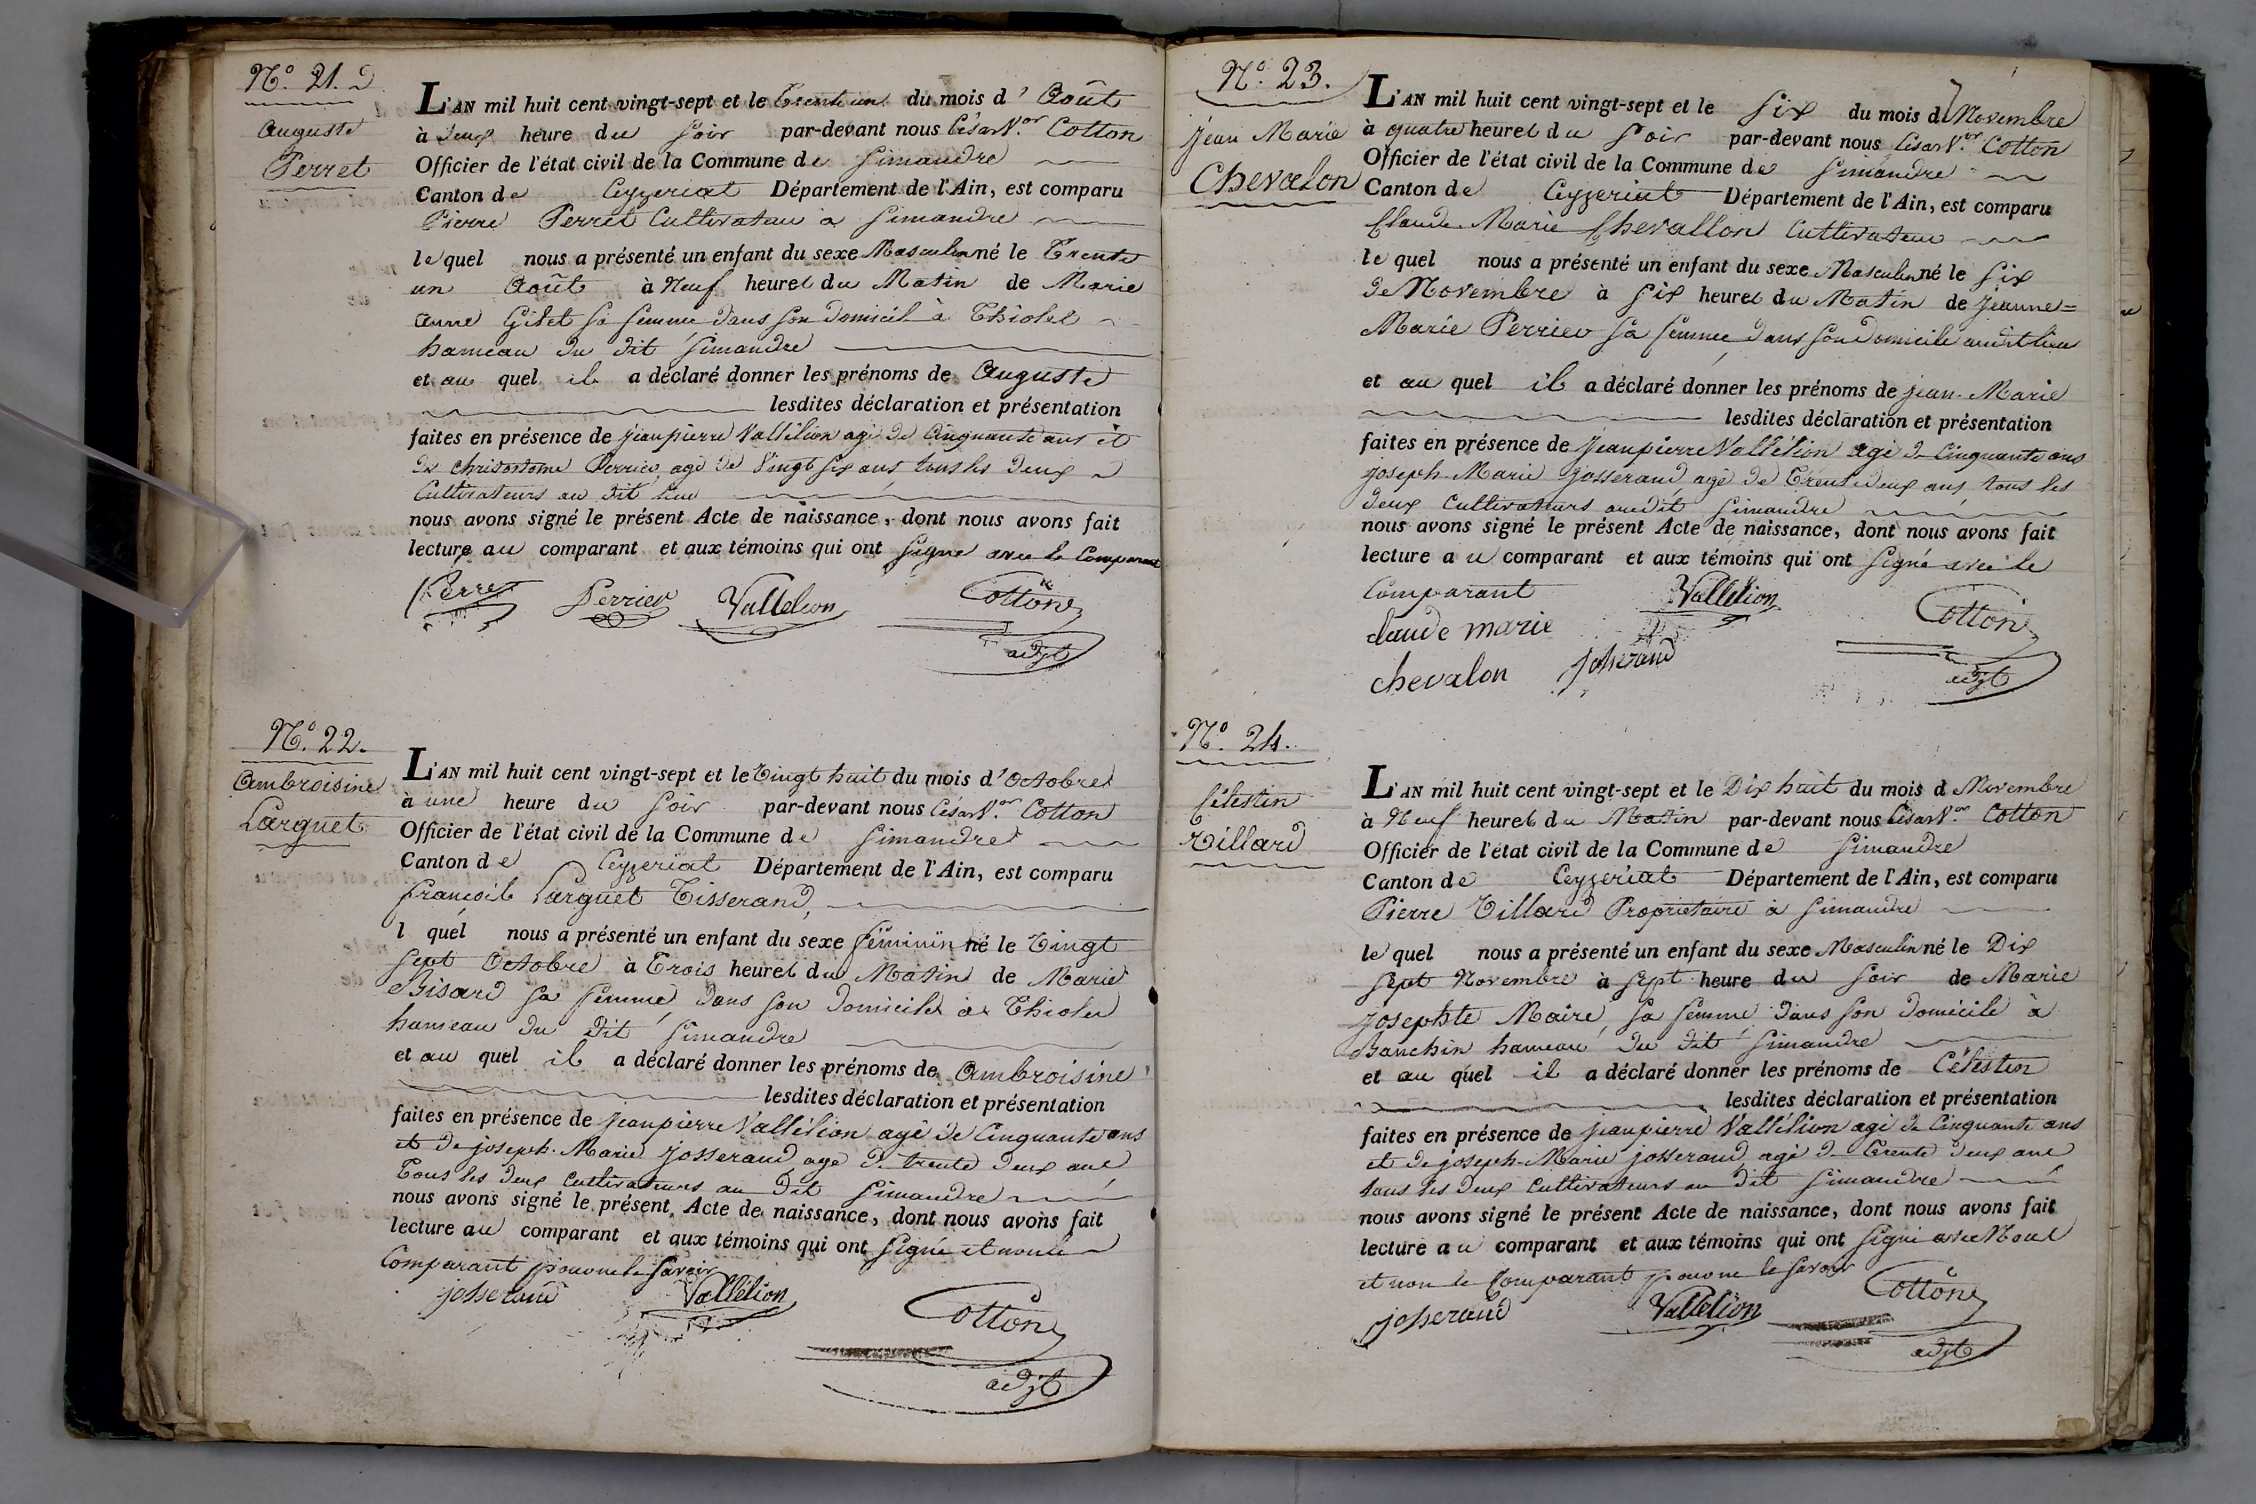 N.º 21.
Auguste
Perret
L'AN mil huit cent vingt-sept et le trente un du mois d'Août
à deux heure du soir par-devant nous César V.or Cotton
Officier de l'état civil de la Commune de Simandre
Canton de Ceyzeriat Département de l'Ain, est comparu
Pierre Perret Cultivateur à Simandre
lequel nous a présenté un enfant du sexe Masculin né le Trente
un Août à Neuf heures du Matin de Marie
anne Gilet sa femme dans son domicile à Thioles
hameau du dit Simandre
et au quel il a déclaré donner les prénoms de Auguste
lesdites déclaration et présentation
faites en présence de jeanpierre Vallélion agé de Cinquante ans et
de chrisostome Perrier agé de Vingt six ans tous les deux
Cultivateurs au dit lieu
nous avons signé le présent Acte de naissance, dont nous avons fait
lecture au comparant et aux témoins qui ont signé avec le Comparant
Perret Perrier Vallelion Cotton
adjt
N.º 22.
Ambroisine
Larguet
L'AN mil huit cent vingt-sept et le Vingt huit du mois d'Octobre
à une heure du soir par-devant nous César V.or Cotton
Officier de l'état civil de la Commune de Simandre
Canton de Ceyzeriat Département de l'Ain, est comparu
françois Larguet Tisserand,
l quel nous a présenté un enfant du sexe féminin né le Vingt
sept Octobre à Trois heures du Matin de Marie
Bisard sa femme dans son domicile à Thioles
hameau du dit Simandre
et au quel il a déclaré donner les prénoms de Ambroisine
lesdites déclaration et présentation
faites en présence de jeanpierre Vallélion agé de Cinquante ans
et de joseph-Marie josserand agé de trente deux ans
Tous les deux Cultivateurs au dit Simandre
nous avons signé le présent Acte de naissance, dont nous avons fait
lecture au comparant et aux témoins qui ont signé et non le
Comparant pour ne le savoir
josserand Vallélion Cotton
adjt
N.º 23.
jean Marie
Chevalon
L'AN mil huit cent vingt-sept et le six du mois d Novembre
à quatre heures du soir par-devant nous César V.or Cotton
Officier de l'état civil de la Commune de Simandre
Canton de Ceyzeriat Département de l'Ain, est comparu
Claude Marie Chevallon Cultivateur
le quel nous a présenté un enfant du sexe Masculin né le six
de Novembre à six heures du Matin de jeanne=
Marie Perrier sa femme dans son domicile audit lieu
et au quel il a déclaré donner les prénoms de jean Marie
lesdites déclaration et présentation
faites en présence de jeanpierre Vallélion agé de Cinquante ans
joseph-Marie josserand agé de Trente deux ans, tous les
deux Cultivateurs audit Simandre
nous avons signé le présent Acte de naissance, dont nous avons fait
lecture au comparant et aux témoins qui ont signé avec le
Comparant Vallélion Cotton
claude marie
chevalon josserand adjt
N.º 24.
Célestin
Tillard
L'AN mil huit cent vingt-sept et le Dix huit du mois d Novembre
à Neuf heures du Matin par-devant nous César V.or Cotton
Officier de l'état civil de la Commune de Simandre
Canton de Ceyzeriat Département de l'Ain, est comparu
Pierre Tillard Propriétaire à Simandre
le quel nous a présenté un enfant du sexe Masculin né le Dix
sept Novembre à sept heure du soir de Marie
josephte Maire sa femme dans son domicile à
Banchin hameau du dit Simandre
et au quel il a déclaré donner les prénoms de Célestin
lesdites déclaration et présentation
faites en présence de jeanpierre Vallélion agé de Cinquante ans
et de joseph-Marie josserand agé de Trente deux ans
tous les deux Cultivateurs au dit Simandre
nous avons signé le présent Acte de naissance, dont nous avons fait
lecture au comparant et aux témoins qui ont signé avec Nous
et non le Comparant pour ne le savoir
josserand Vallélion Cotton
adjt